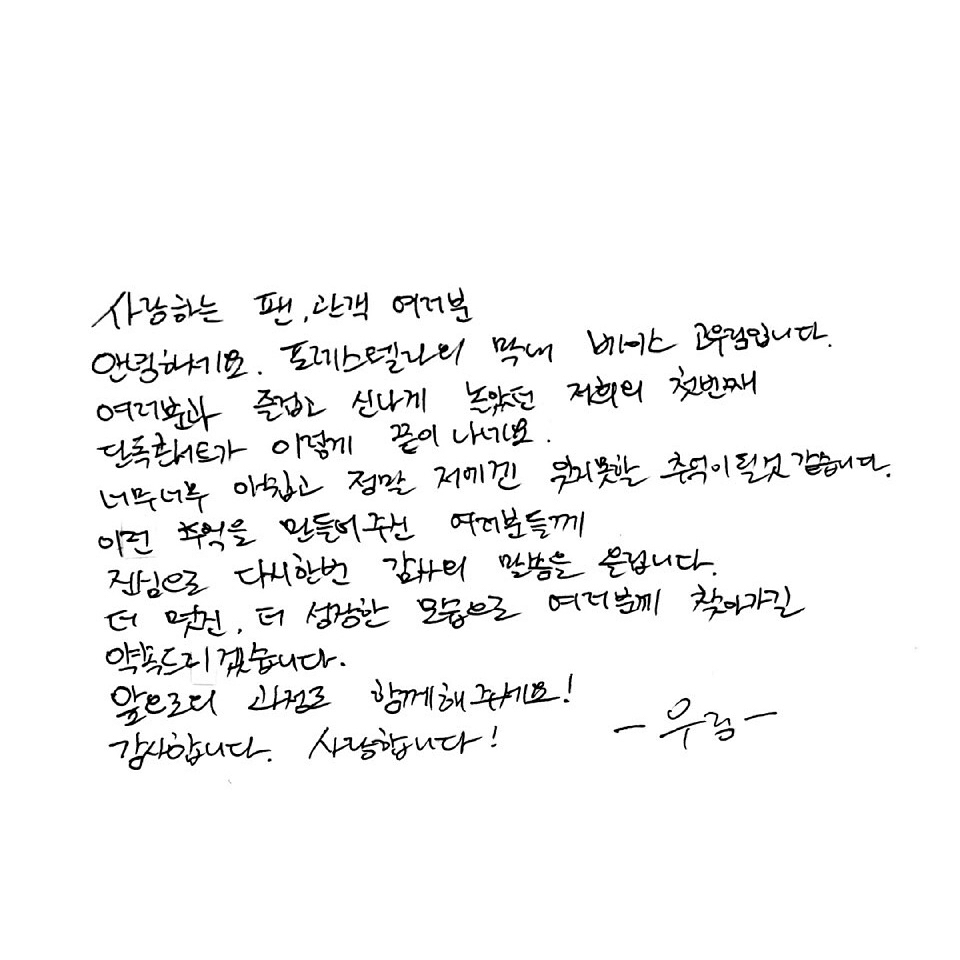 사랑하는 팬, 관객 여러분
안녕하세요. 포레스텔라의 막내 베이스 고우림입니다.
여러분과 즐겁고 신나게 놀았던 저희의 첫번째
단독콘서트가 이렇게 끝이 나네요.
너무너무 아쉽고 정말 저에겐 잊지못할 추억이 될것 같습니다.
이런 추억을 만들어주신 여러분들께
진심으로 다시한번 감사의 말씀을 올립니다.
더 멋진, 더 성장한 모습으로 여러분께 찾아가길
약속드리겠습니다.
앞으로의 과정도 함께해주세요!
감사합니다. 사랑합니다!
- 우림 -